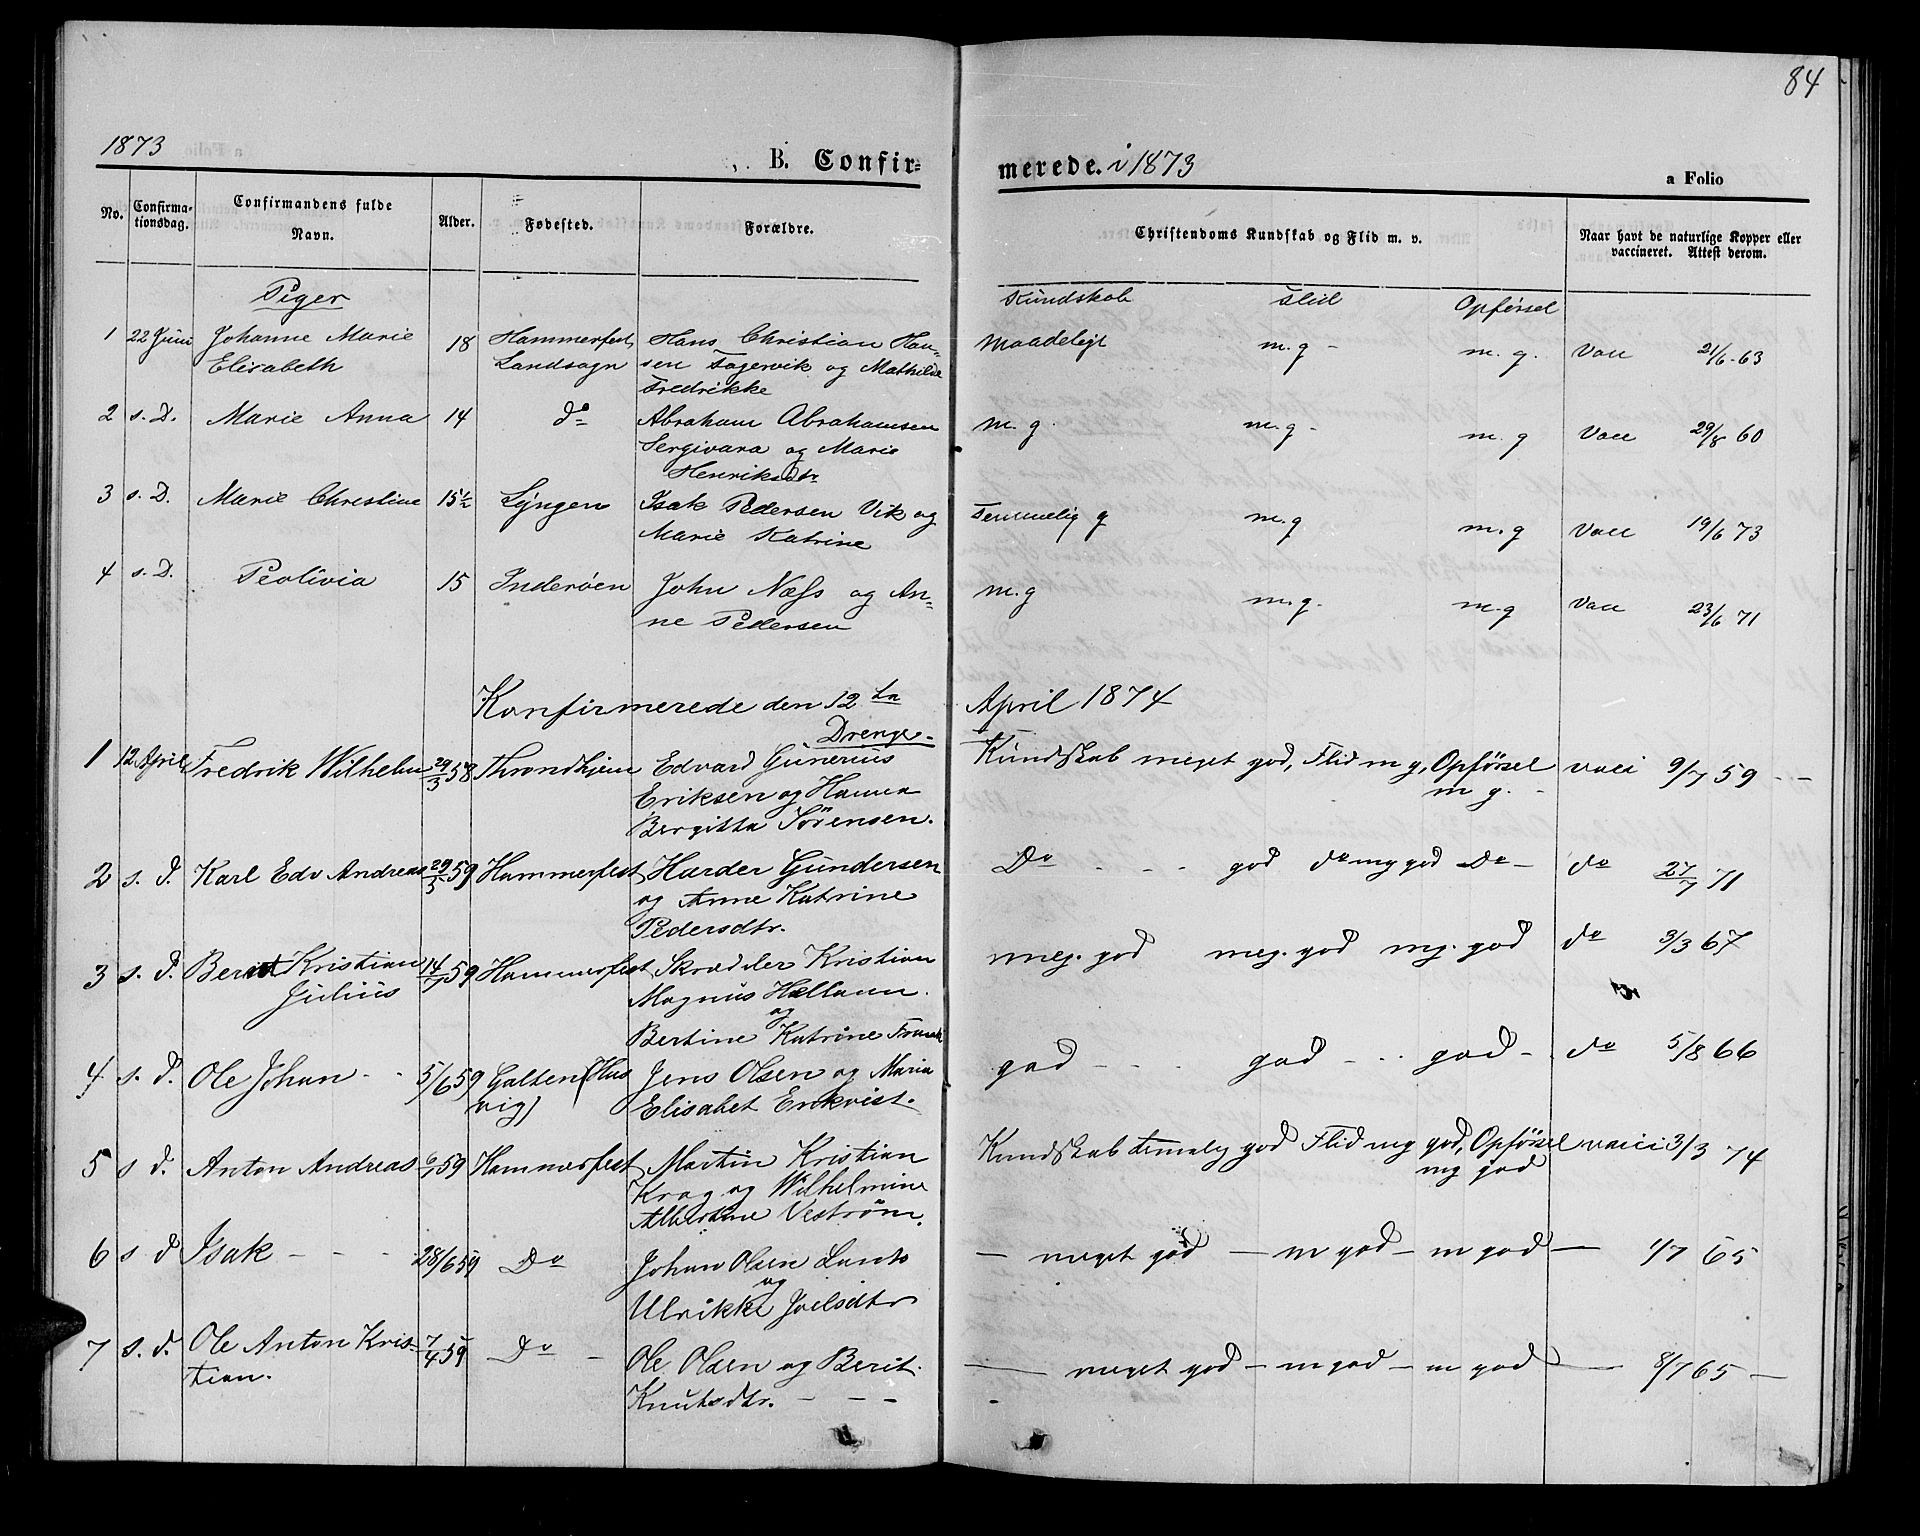 84
1873
B. Confirmerede. i 1873
a Folio
No. Confirmationsdag. Confirmandens fulde Navn. Alder. Fødested. Forældre. Christendoms Kundskab og Flid m. v. Naar havt de naturlige Kopper eller vaccineret. Attest derom.
Piger Kundskab Flid Opførsel
1 22 Juni Johanne Marie 18 Hammerfest Hans Christian Han- Maadeligt m.g - m. g. Vacc 21/6-63
Elisabeth Landsogn sen Fagervik og Mathilde
Fredrikke
2 s. D. Marie Anna 14 do Abraham Abrahamsen m. g. m.g - m. g Vacc 29/8 60
Sergivara og Marie
Henriksdtr
3 s. D. Marie Christine 15½ Lyngen Isak Pedersen Vik og Temmelig g m.g m. g Vacc 19/6 73
Marie Katrine
4 s. D. Peolivia 15 Inderøen John Næss og An= m. g m. g. m. g Vacc 23/6 71
ne Pedersen
Konfirmerede den 12te April 1874
Drenge
1 12 April Fredrik Wilhelm 29/3 58 Throndhjem Edvard Gunerius Kundskab meget god, Flid m g, Opførsel vacc 9/7 59 --
Eriksen og Hanna m g. -
Bergitta Sørensen.
2 s. d. Karl Edv Andreas 29/3 59 Hammerfest Harder Gundersen Do - - - god do mg god Do - do 27/7 71
og Anne Katrine
Pedersdtr.
3 s. d. Bernt Kristian 14/7 59 Hammerfest Skrædder Kristian meg. god meg. god mg. god do 3/3 67
Julius Magnus Hællann
og
Bertine Katrine
4 s. d. Ole Johan - - 5/6 59 Galten (Hus Jens Olsen og Maria god - - - god - - - god - do 5/8 66
vig) Elisabet Enkvist.
5 s d. Anton Andreas 6/7 59 Hammerfest Martin Kristian Kundskab temelig god Flid mg god, Opførsel vacci 3/3 74
Krag og Wilhelmine mg god
Albertine Vestrøm.
6 s d Isak - - - 28/6 59 Do Johan Olsen - meget god - m god - m god - 4/7 65
og
Ulrikke Joelsdtr
7 s. d. Ole Anton Kris- 7/4 59 Do - Ole Olsen og Berit - meget god - m god - m god - 8/7 65 -
tian. Knutsdtr. - - -